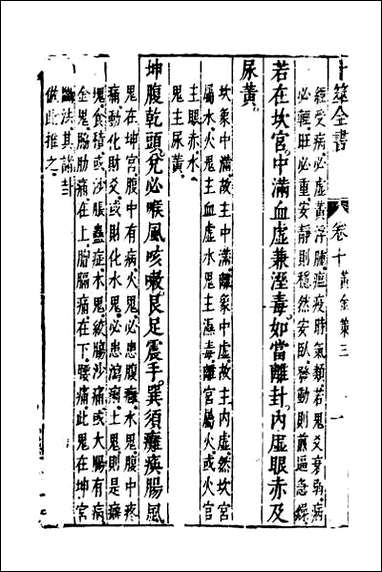 卜筮全書
卷十 黃金策三
一
經受病必虛黃浮腫瘟疫肺氣類若鬼爻衰弱病
必輕旺必重安靜則穩然安臥發動則煎逼急燥
若在坎宮中滿血虛兼溼毒如當離卦內虛眼赤及
尿黃
坎象中滿故主中滿離象中虛故主內虛然坎宮
屬水火鬼主血虛水鬼主濕毒離宮屬火或火宮
主眼赤水
鬼主尿黃
坤腹乾頭兌必喉風咳嗽艮足震手巽須癱瘓腸風
鬼在坤宮腹中有病火鬼必患腹癰水鬼腹中疼
痛動化財爻或財化水鬼必患瀉痢土鬼則是癖
塊食積或沙脹蠱症木鬼絞腸沙痛或大腸有病
金鬼脇肋痛在上胸膈痛在下腰痛此鬼在坤宮
斷法其諸卦
倣此推之